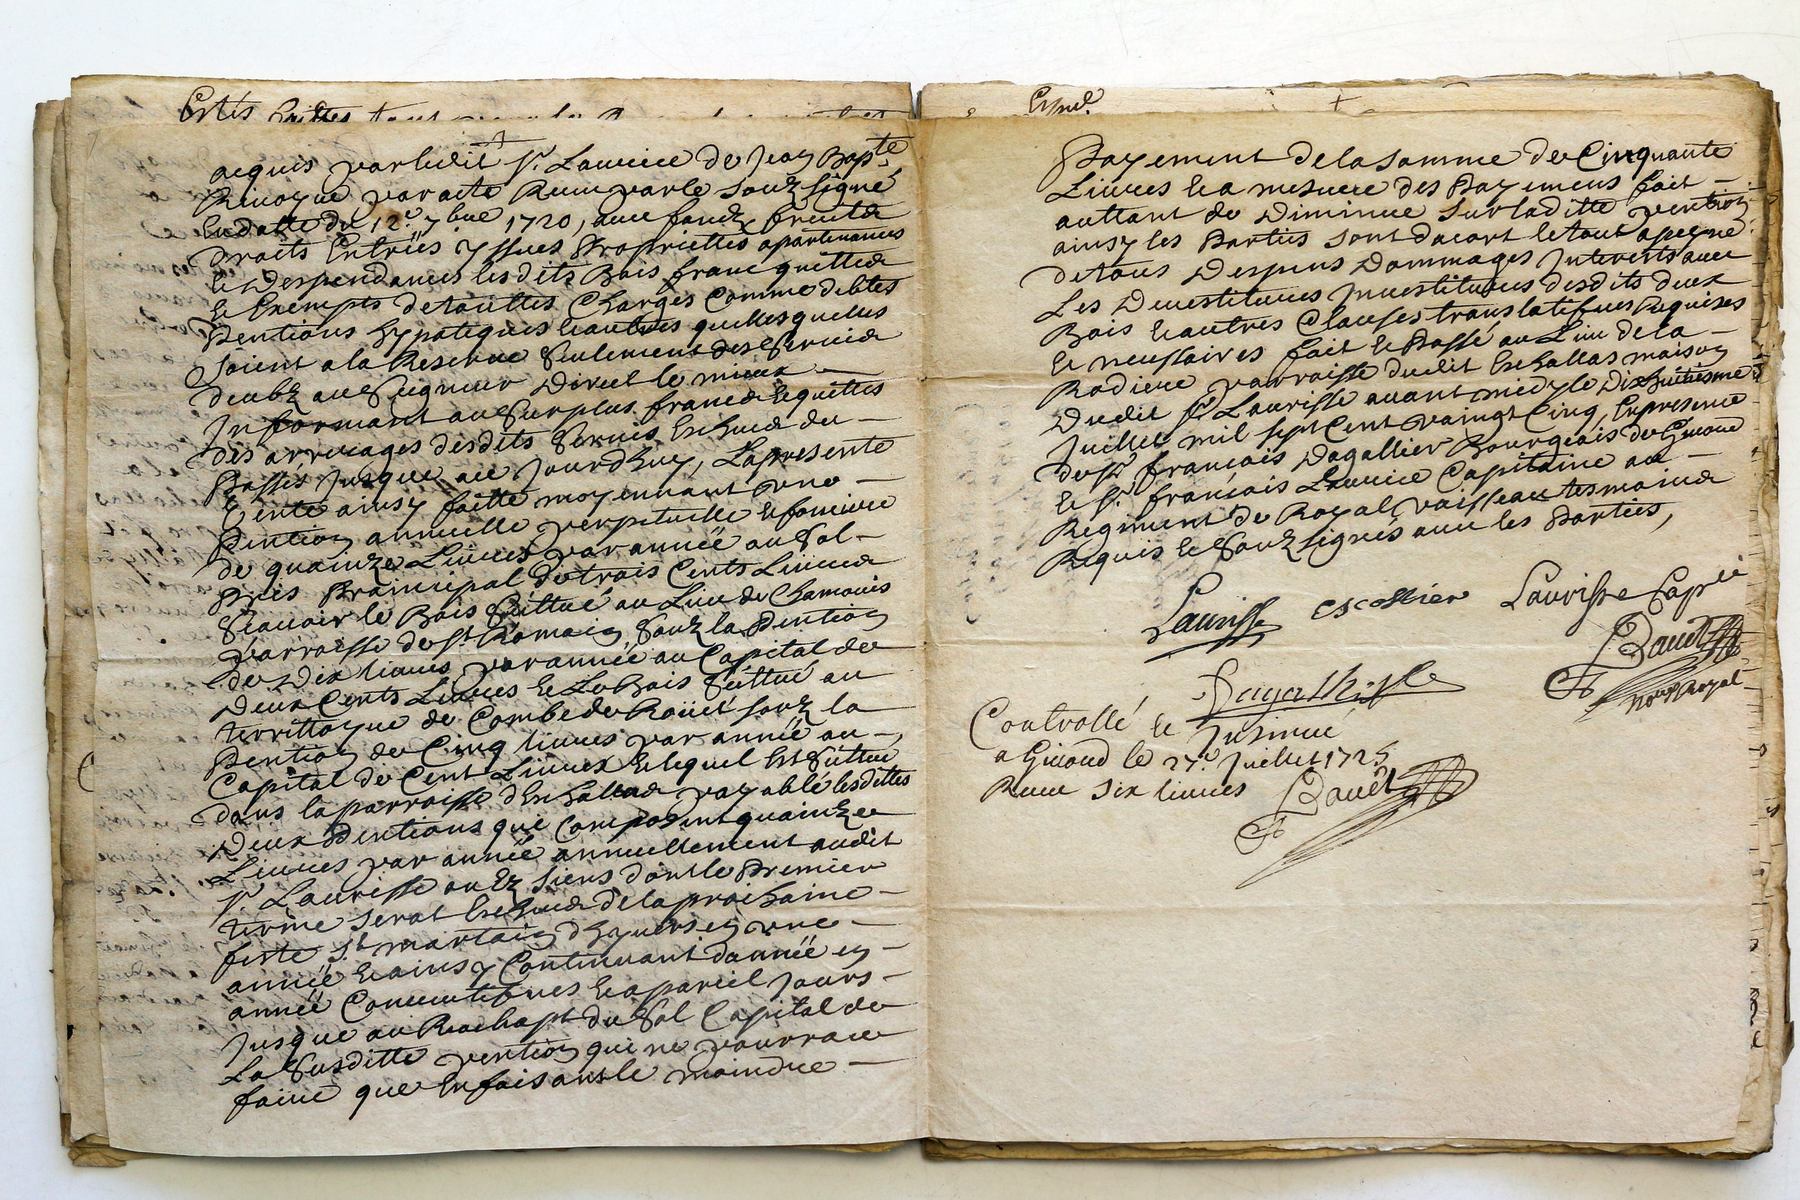 acquis par ledit Sr. Laurice de Jean Bapte
par acte Receu par le souz signé
En datte du 12e. 7bre 1720, avec fondz
droits Entrées yssues Proprietés apartenances
et Despendances lesdits Bois franc quittes
et Exempts de touttes Charges Comme debtes
Pentions hypoteques et autres quelles quelles
soient a la Reserve seulement des servies
deubz au seigneur Direct le mieux
Informant au surplus francs et quittes
des arreyages desdits servis Escheus du
Passés jusque au jourdhuy, La presente
Vente ainsy faitte moyennant une
Pention annuelle perpetuelle et fonciere
de quainze Livres par année au sol
Pris Prainsipal de trois Cents Livres
sçavoir le Bois sittué au Lieu de Chamouis
parroisse de St. Romain souz la Pention
de Dix livres par année au Capital de
Deux Cents Livres et Le Bois sittué au
territoyre de Combe de Roüet souz la
Pention de Cinq livres par année au
Capital de Cent Livres et lequel Est sittué
dans la parroisse d'Eshallas payable lesdittes
Deux Pentions que Composent quainze
Livres par année annuellement audit
Sr Laurisse ou Ez siens dont le Premier
terme serat Escheus de la prochaine
feste St. martain d'hyvers en une
année et ainsy Continuant d'année en
année Consecutifves et a pareil jours
Jusque au Rachapt du sol Capital de
La susditte pention qui ne pourra
faire que En faisant le moindre
Payement de la somme de Cinquante
Livres et a mesure des Payemens fait
auttant de Diminue sur laditte pention
ainsy les Parties sont d'acort le tout a peyne
de tous Despens Dommages Interests avec
Les Devestitures Investitures desdits deux
Bois et autres Clauses translatifves Requises
et neussaires fait et Passé au Lieu de la
Rodiere parroisse dudit Eshallas maison
Dudit Sr Laurisse avant midy le Dixhuitiesme
Juillet mil sept Cent vaingt Cinq, En presence
de Sr françois Dagallier Bourgeois de Givord
et Sr. françois Laurice Capitaine au
Regiment de Royal vaisseau tesmoins
Requis et souz signés avec les Parties,
Laurisse escoffier Laurisse Cap
Bauet
no Royal
Controllé et Insinué
a Givord le 27e. Juillet 1725
Receu six livres Bauet